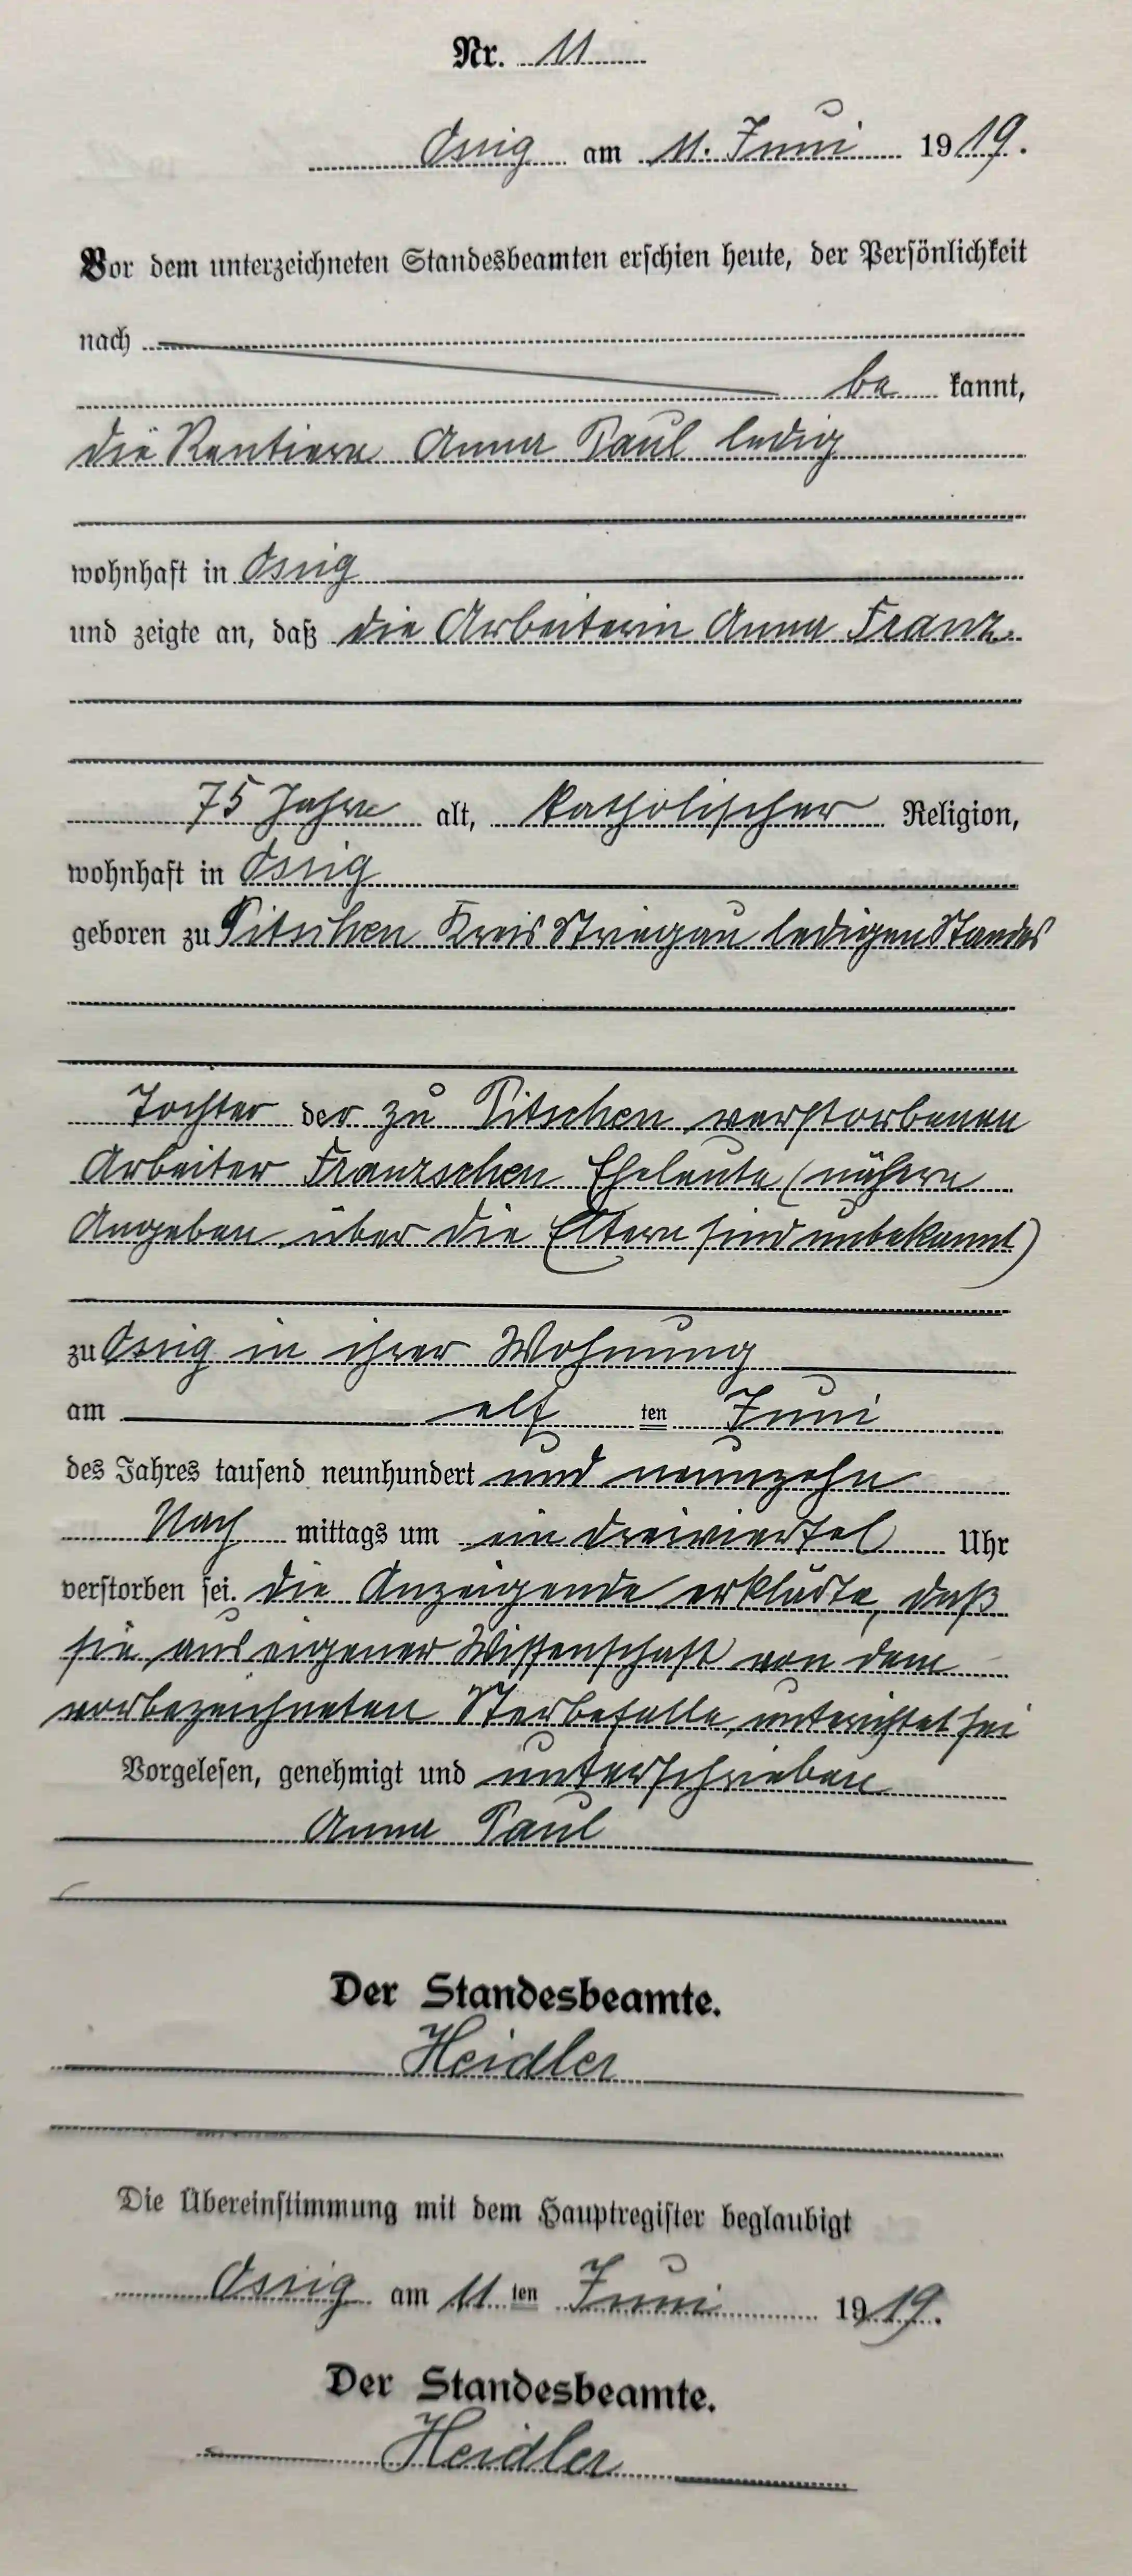 Nr. 11
Ossig am 11. Juni 1919.
Vor dem unterzeichneten Standesbeamten erschien heute, der Persönlichkeit
nach
be kannt,
die Rentiere Anna Paul ledig
wohnhaft in Ossig
und zeigte an, daß die Arbeiterin Anna Franz
75 Jahre alt, katholischer Religion,
wohnhaft in Ossig
geboren zu Pitschen Kreis Striegau ledigen Standes
Tochter der zu Pitschen verstorbenen
Arbeiter Franzschen Eheleute (nähere
Angaben über die Eltern sind unbekannt)
zu Ossig in ihrer Wohnung
am elf ten Juni
des Jahres tausend neunhundert und neunzehn
Nach mittags um ein dreiviertel Uhr
verstorben sei. Die Anzeigende erklärte, daß
sie aus eigener Wissenschaft von dem
vorbezeichneten Sterbefalle unterrichtet sei
Vorgelesen, genehmigt und unterschrieben
Anna Paul
Der Standesbeamte.
Heidler
Die Übereinstimmung mit dem Hauptregister beglaubigt
Ossig am 11 ten Juni 1919.
Der Standesbeamte.
Heidler